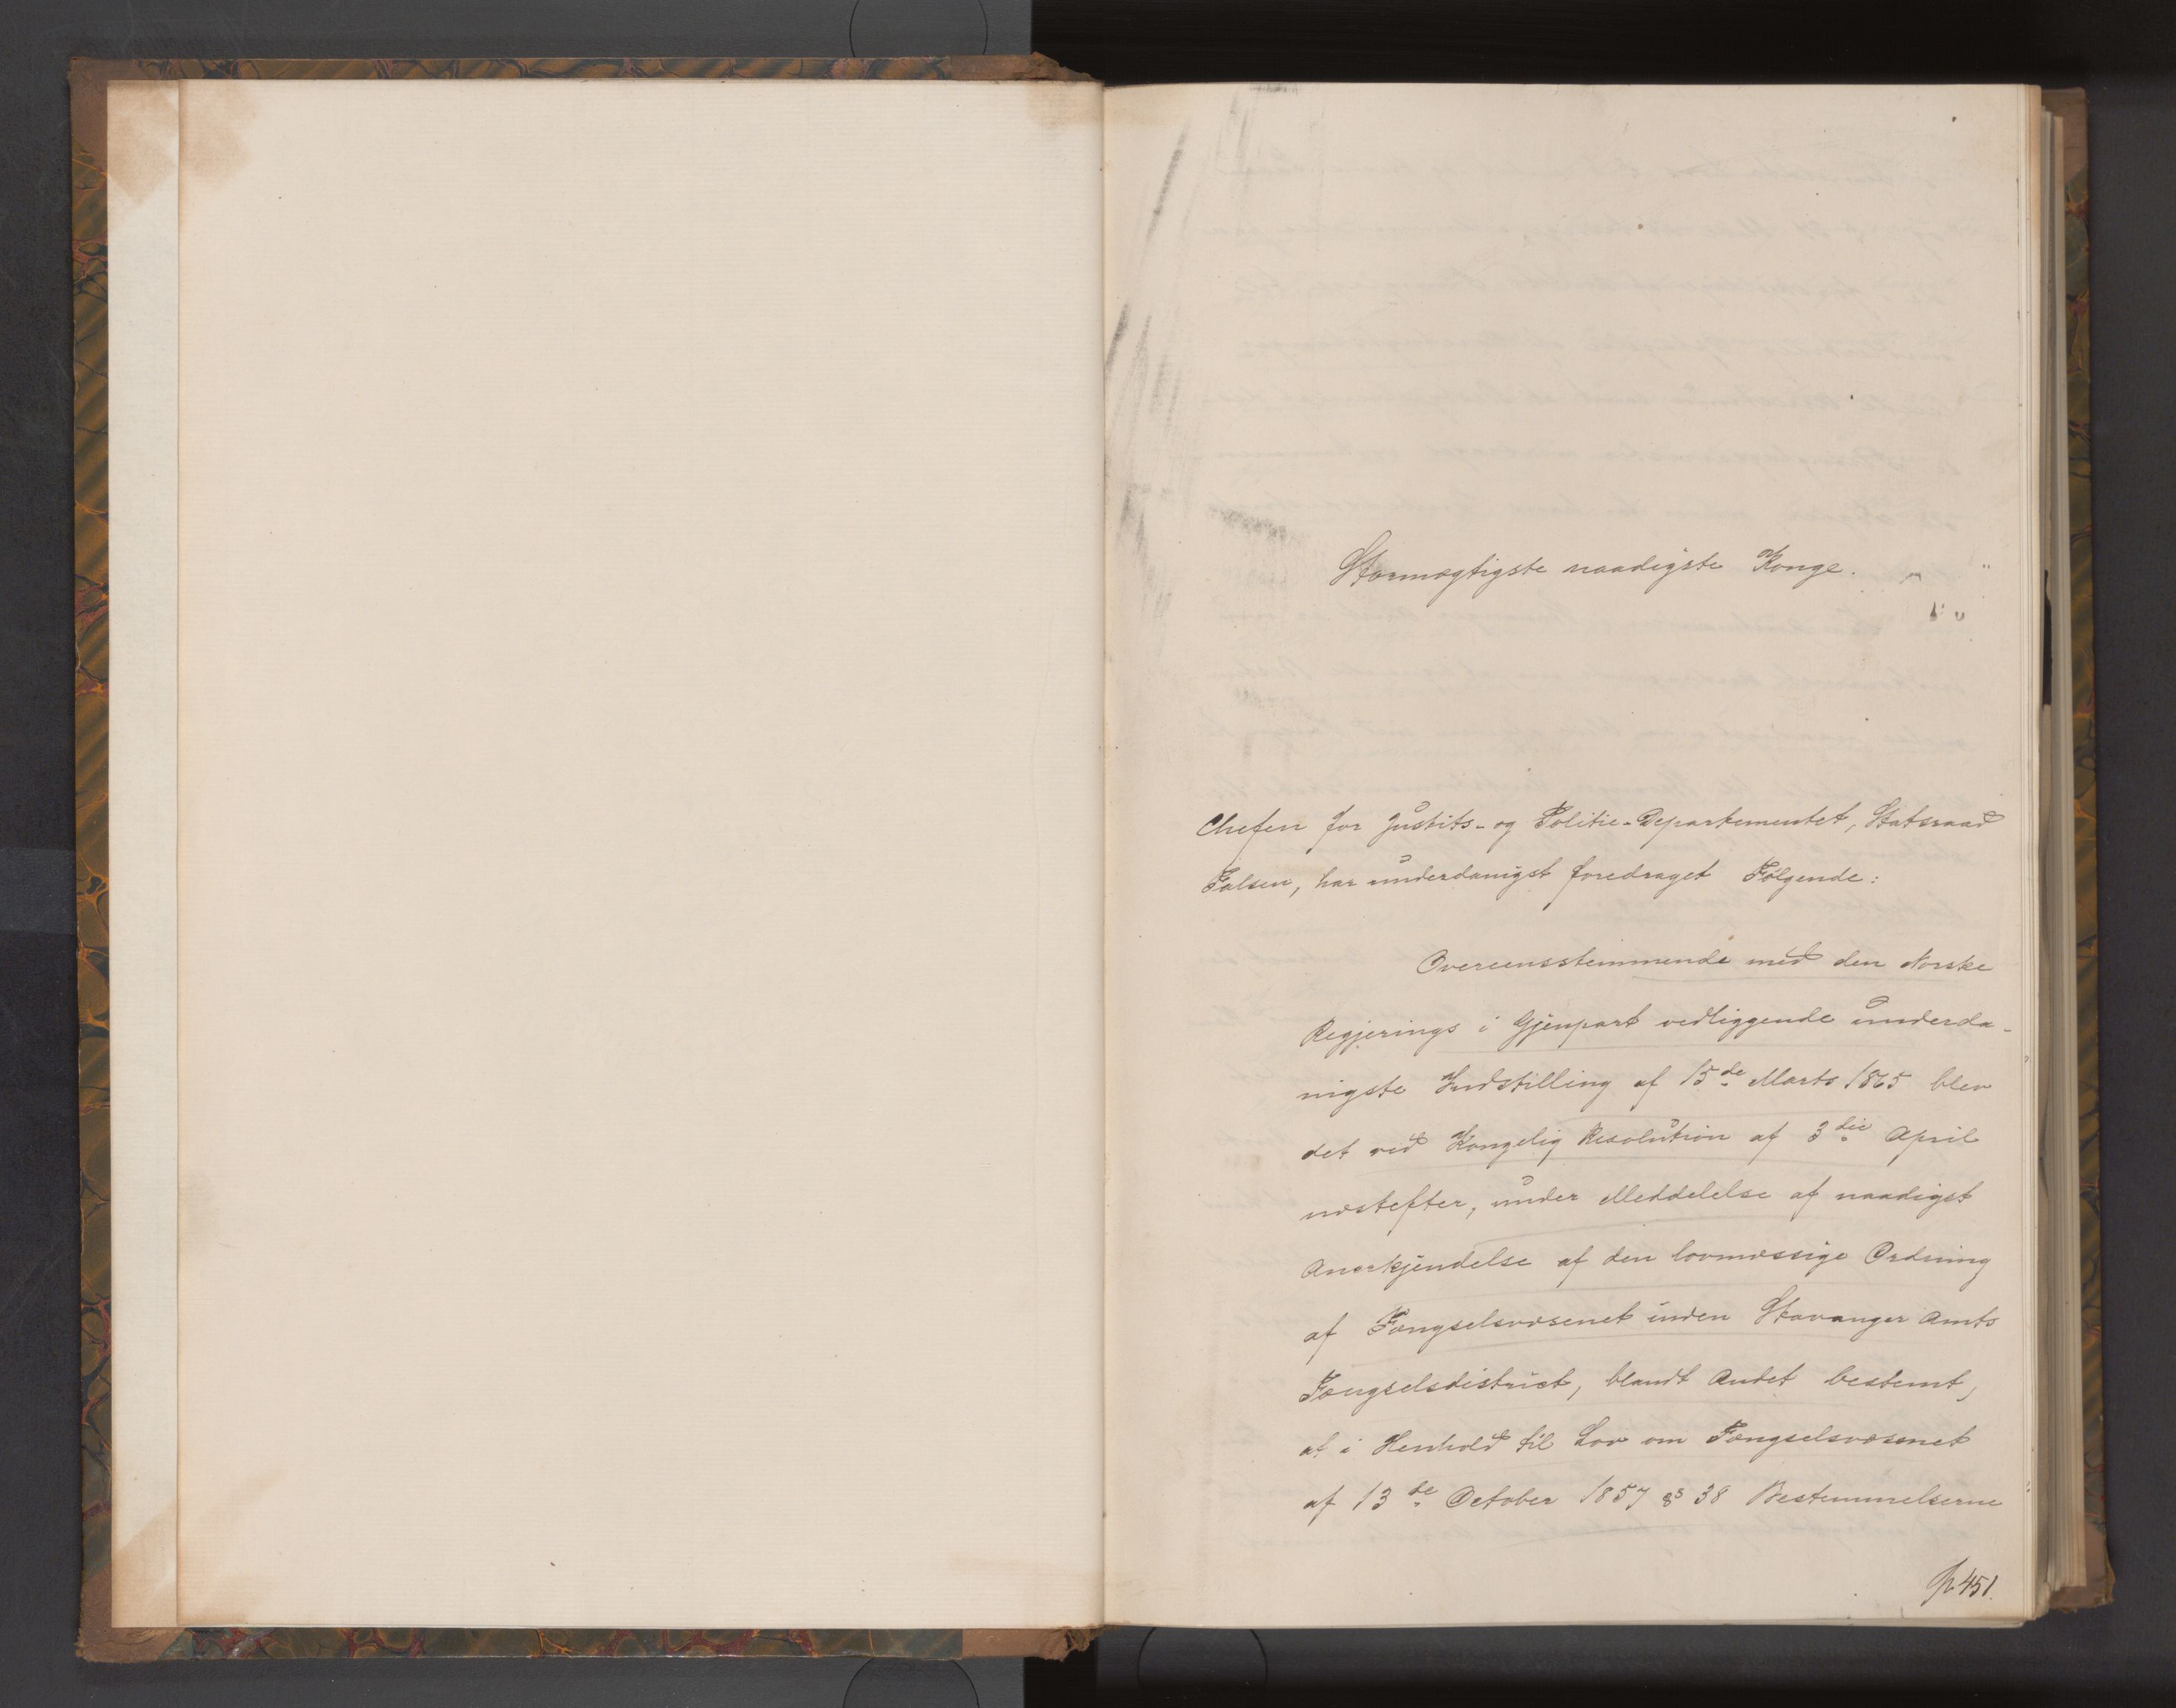 Stormægtigste naadigste Konge.
Chefen for Justits- og Politie-Departementet, Statsraad
Falsen, har underdanigst foredraget Følgende:
Overeensstemmende med den Norske
Regjerings i Gjenpart vedliggende underda-
nigste Indstilling af 15de Marts 1865 blev
det ved Kongelig Resolution af 3die April
næstefter, under Meddelelse af naadigst
Anerkjendelse af den lovmæssige Ordning
af Fængselsvæsenet inden Stavanger Amts
Fængselsdistrict, blandt Andet bestemt,
at i Henhold til Lov om Fængselsvæsenet
af 13de October 1857 § 38 Bestemmelserne
P. 451.